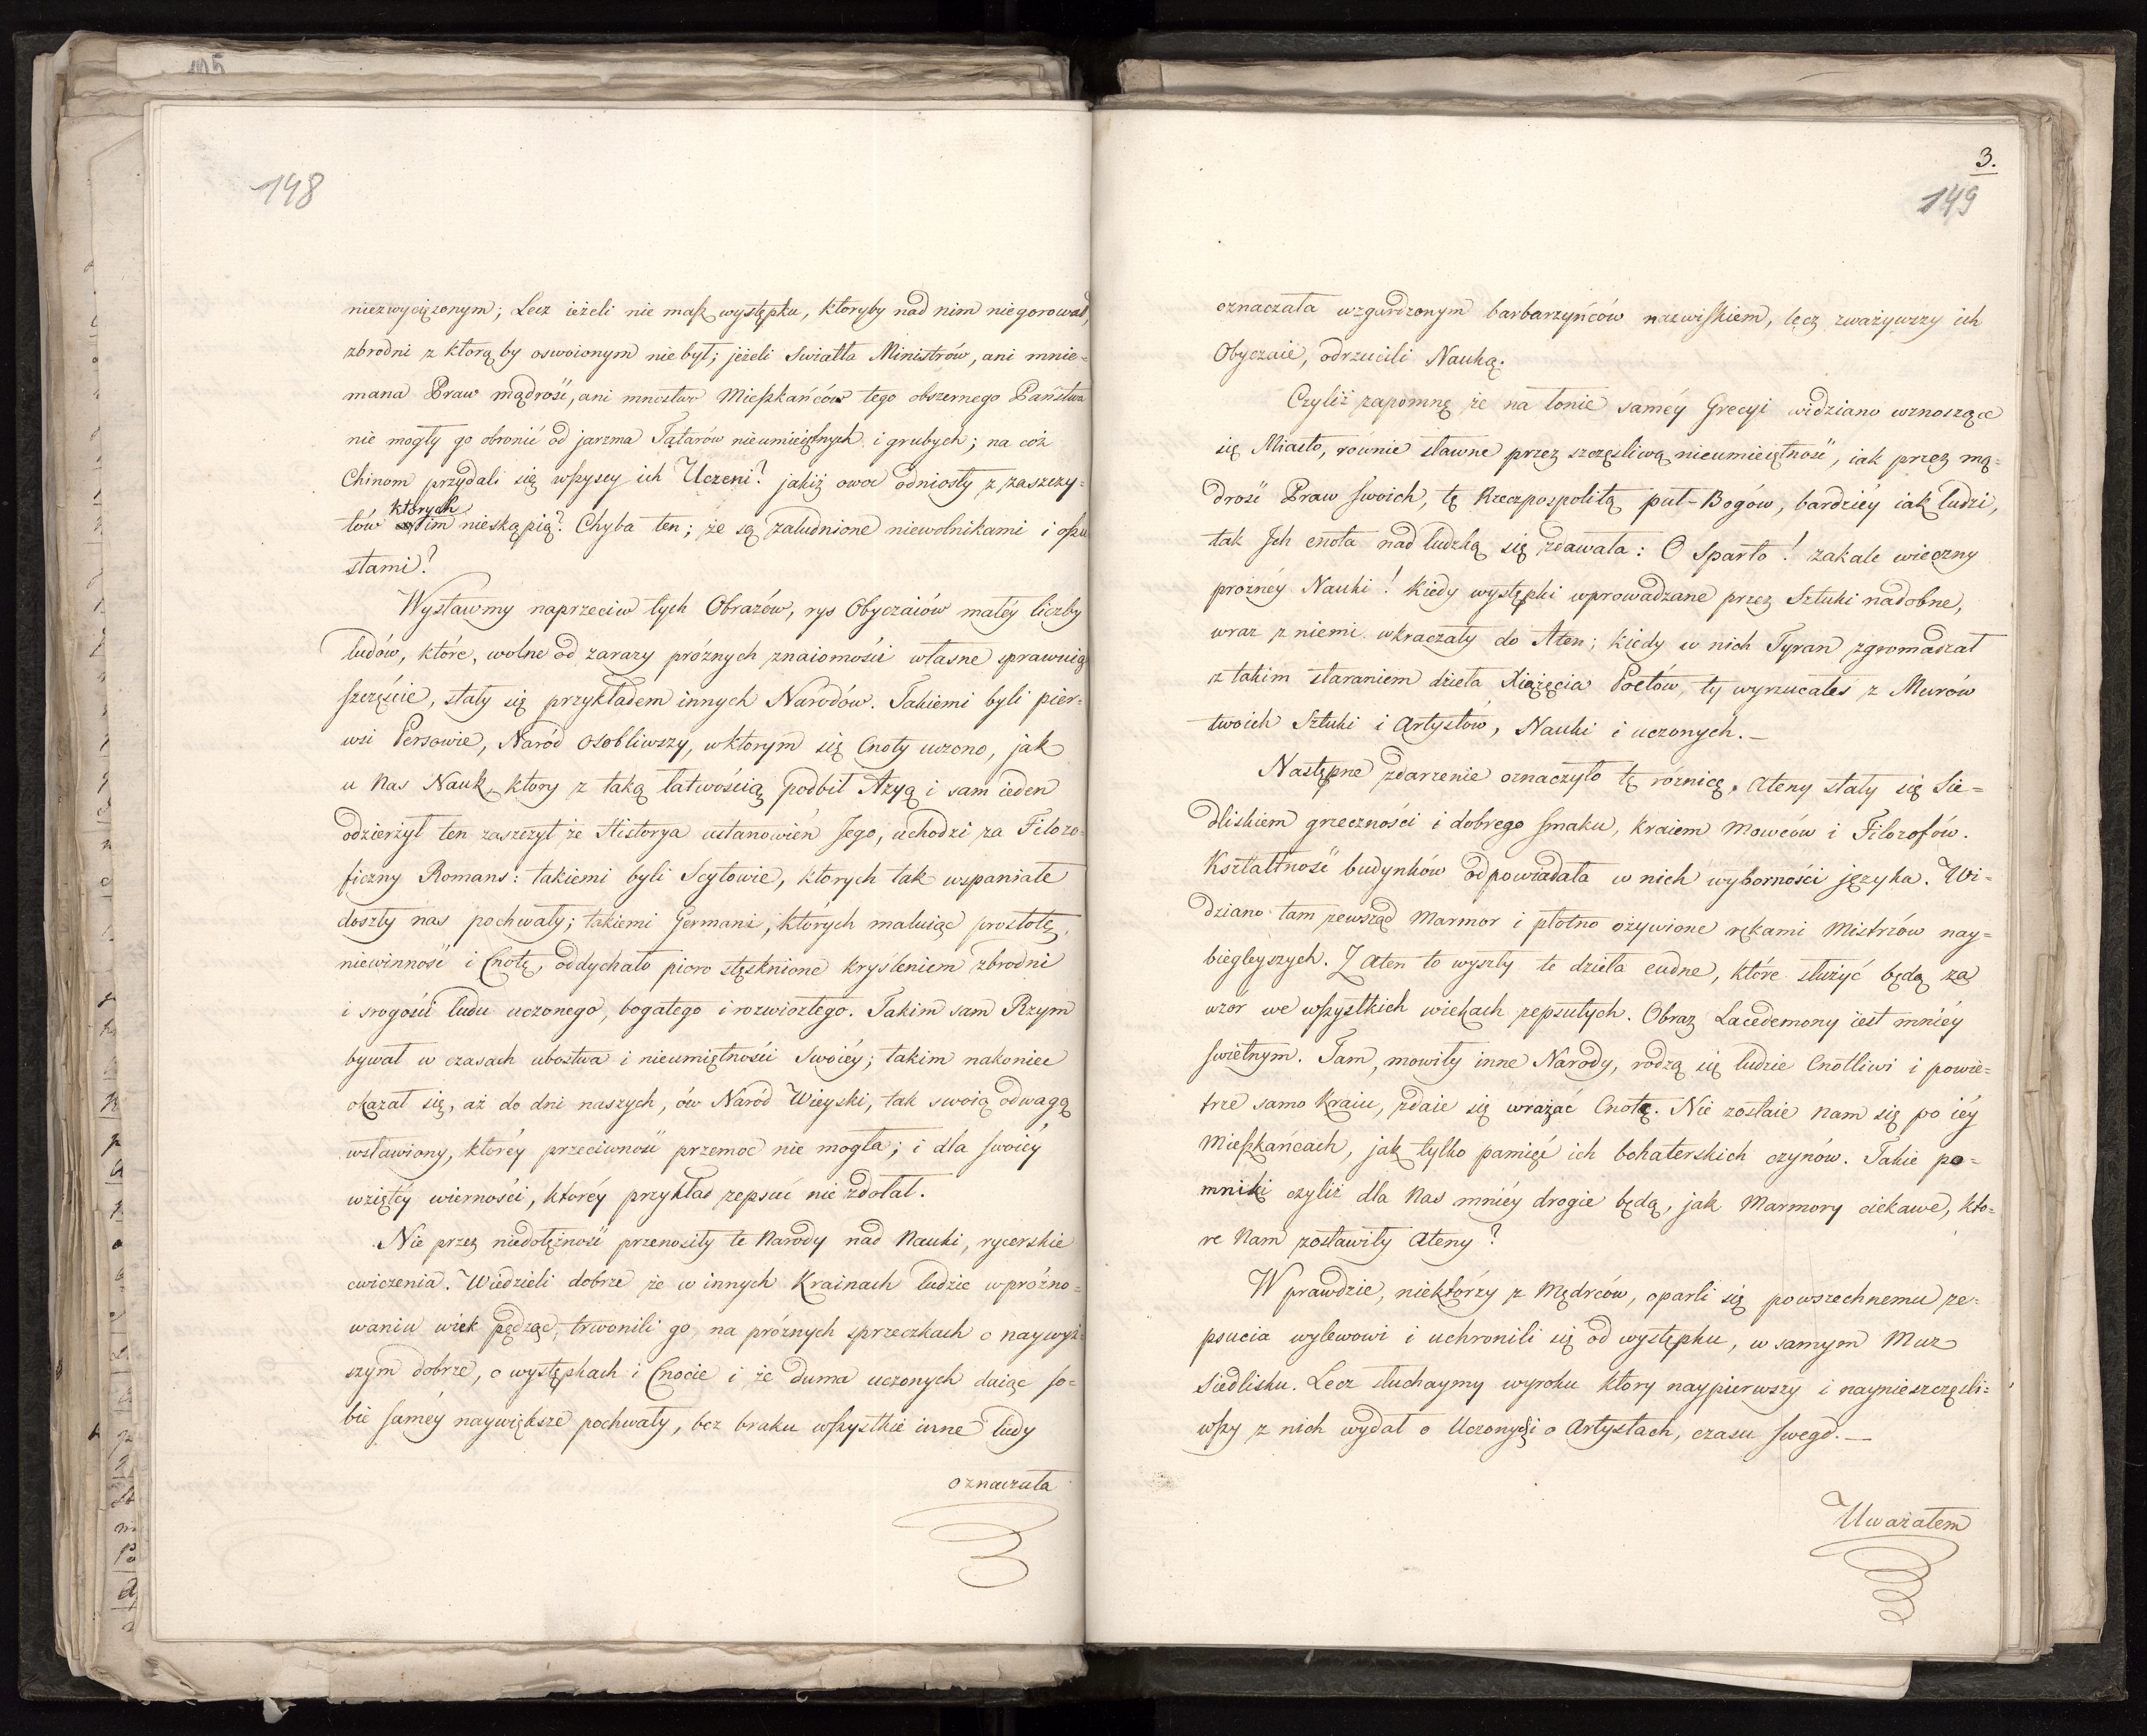 148
niezwyciężonym; Lecz ieżeli nie masz występku, ktoryby nad nim niegorował,
zbrodni z ktorą by oswoionym nie był; jeżeli Swiatła Ministrów, ani mnie=
mana Praw mądrość, ani mnostwo Mieszkańców tego obszernego Państwa
nie mogły go obronić od jarzma Tatarów nieumieiętnych i grubych; na coż
Chinom przydali się wszyscy ich Uczeni? jakiż owoc odniosły z zaszczy=
których
tów im nieskąpią? Chyba ten; że są zaludnione niewolnikami i oszu
stami?
Wystawmy naprzeciw tych Obrazów, rys Obyczaiów małéy liczby
ludów, które, wolne od zarazy próżnych znaiomości własne sprawuią
szczęście, stały się przykładem innych Narodów. Takiemi byli pier=
wsi Persowie, Naród osobliwszy, wktorym się Cnoty uczono, jak
u Nas Nauk, ktory z taką łatwością podbił Azyą i sam ieden
odzierżył ten zaszczyt że Historya ustanowień Jego, uchodzi za Filozo=
ficzny Romans: takiemi byli Scytowie, ktorych tak wspaniałe
doszły nas pochwały; takiemi Germani, których maluiąc prostotę,
niewinność i Cnotę, oddychało pioro stęsknione kryśleniem zbrodni
i srogości ludu uczonego, bogatego i rozwiozłego. Takim sam Rzym
bywał w czasach ubostwa i nieumiętności Swoiéy; takim nakoniec
okazał się, aż do dni naszych, ów Naród Wieyski, tak swoią odwagą
wsławiony, któréy przeciwność przemoc nie mogła; i dla swoiéy
wziętéy wierności, ktoréy przykład zepsuć nie zdołał.
Nie przez niedołężność przenosiły te Narody nad Nauki, rycerskie
cwiczenia. Wiedzieli dobrze że w innych Krainach ludzie wpróżno=
waniu wiek pędząc, trwonili go na próżnych sprzeczkach o naywyż=
szym dobrze, o występkach i Cnocie i że duma uczonych daiąc so=
bie saméy naywiększe pochwały, bez braku wszystkie inne ludy
oznaczała
3.
149
oznaczała wzgardzonym barbarzyńców nazwiskiem, lecz zważywszy ich
Obyczaie, odrzucili Nauką.
Czyliż zapomnę że na łonie saméy Grecyi widziano wznoszące
się Miasto, rownie sławne przez szczęsliwą nieumieiętność, iak przez mą=
drość Praw swoich, tę Rzeczpospolitą puł-Bogów, bardziéy iak ludzi,
tak Ich cnota nad ludzką się zdawała: O Sparto! zakale wieczny
prożnéy Nauki! Kiedy występki wprowadzane przez Sztuki nadobne,
wraz z niemi wkraczały do Aten; kiedy w nich Tyran zgromadzał
z takim staraniem dzieła Xiążęcia Poetów, ty wyrzucałes z Murów
twoich Sztuki i Artystów, Nauki i uczonych. —
Następne zdarzenie oznaczyło tę różnicę. Ateny stały się Sie=
dliskiem grzeczności i dobrego smaku, kraiem Mowców i Filozofów.
Kształtność budynków odpowiadała w nich wyborności języka. Wi=
dziano tam zewsząd Marmor i płotno ożywione rękami Mistrzów nay=
biegleyszych. Z Aten to wyszły te dzieła cudne, które służyć będą za
wzor we wszystkich wiekach zepsutych. Obraz Lacedemony iest mniéy
swietnym. Tam, mowiły inne Narody, rodzą się ludzie Cnotliwi i powie=
trze samo Kraiu, zdaie się wrażać Cnotę. Nie zostaie nam się po iéy
Mieszkańcach, jak tylko pamięć ich bohaterskich czynów. Takie po=
mniki czyliż dla Nas mniéy drogie będą, jak Marmory ciekawe, kto=
re Nam zostawiły Ateny?
W prawdzie, niektórzy z Mędrców, oparli się powszechnemu ze=
psucia wylewowi i uchronili się od występku, w samym Muz
Siedlisku. Lecz słuchaymy wyroku ktory naypierwszy i naynieszczęsli=
wszy z nich wydał o Uczonych i o Artystach, czasu swego. —
Uważałem